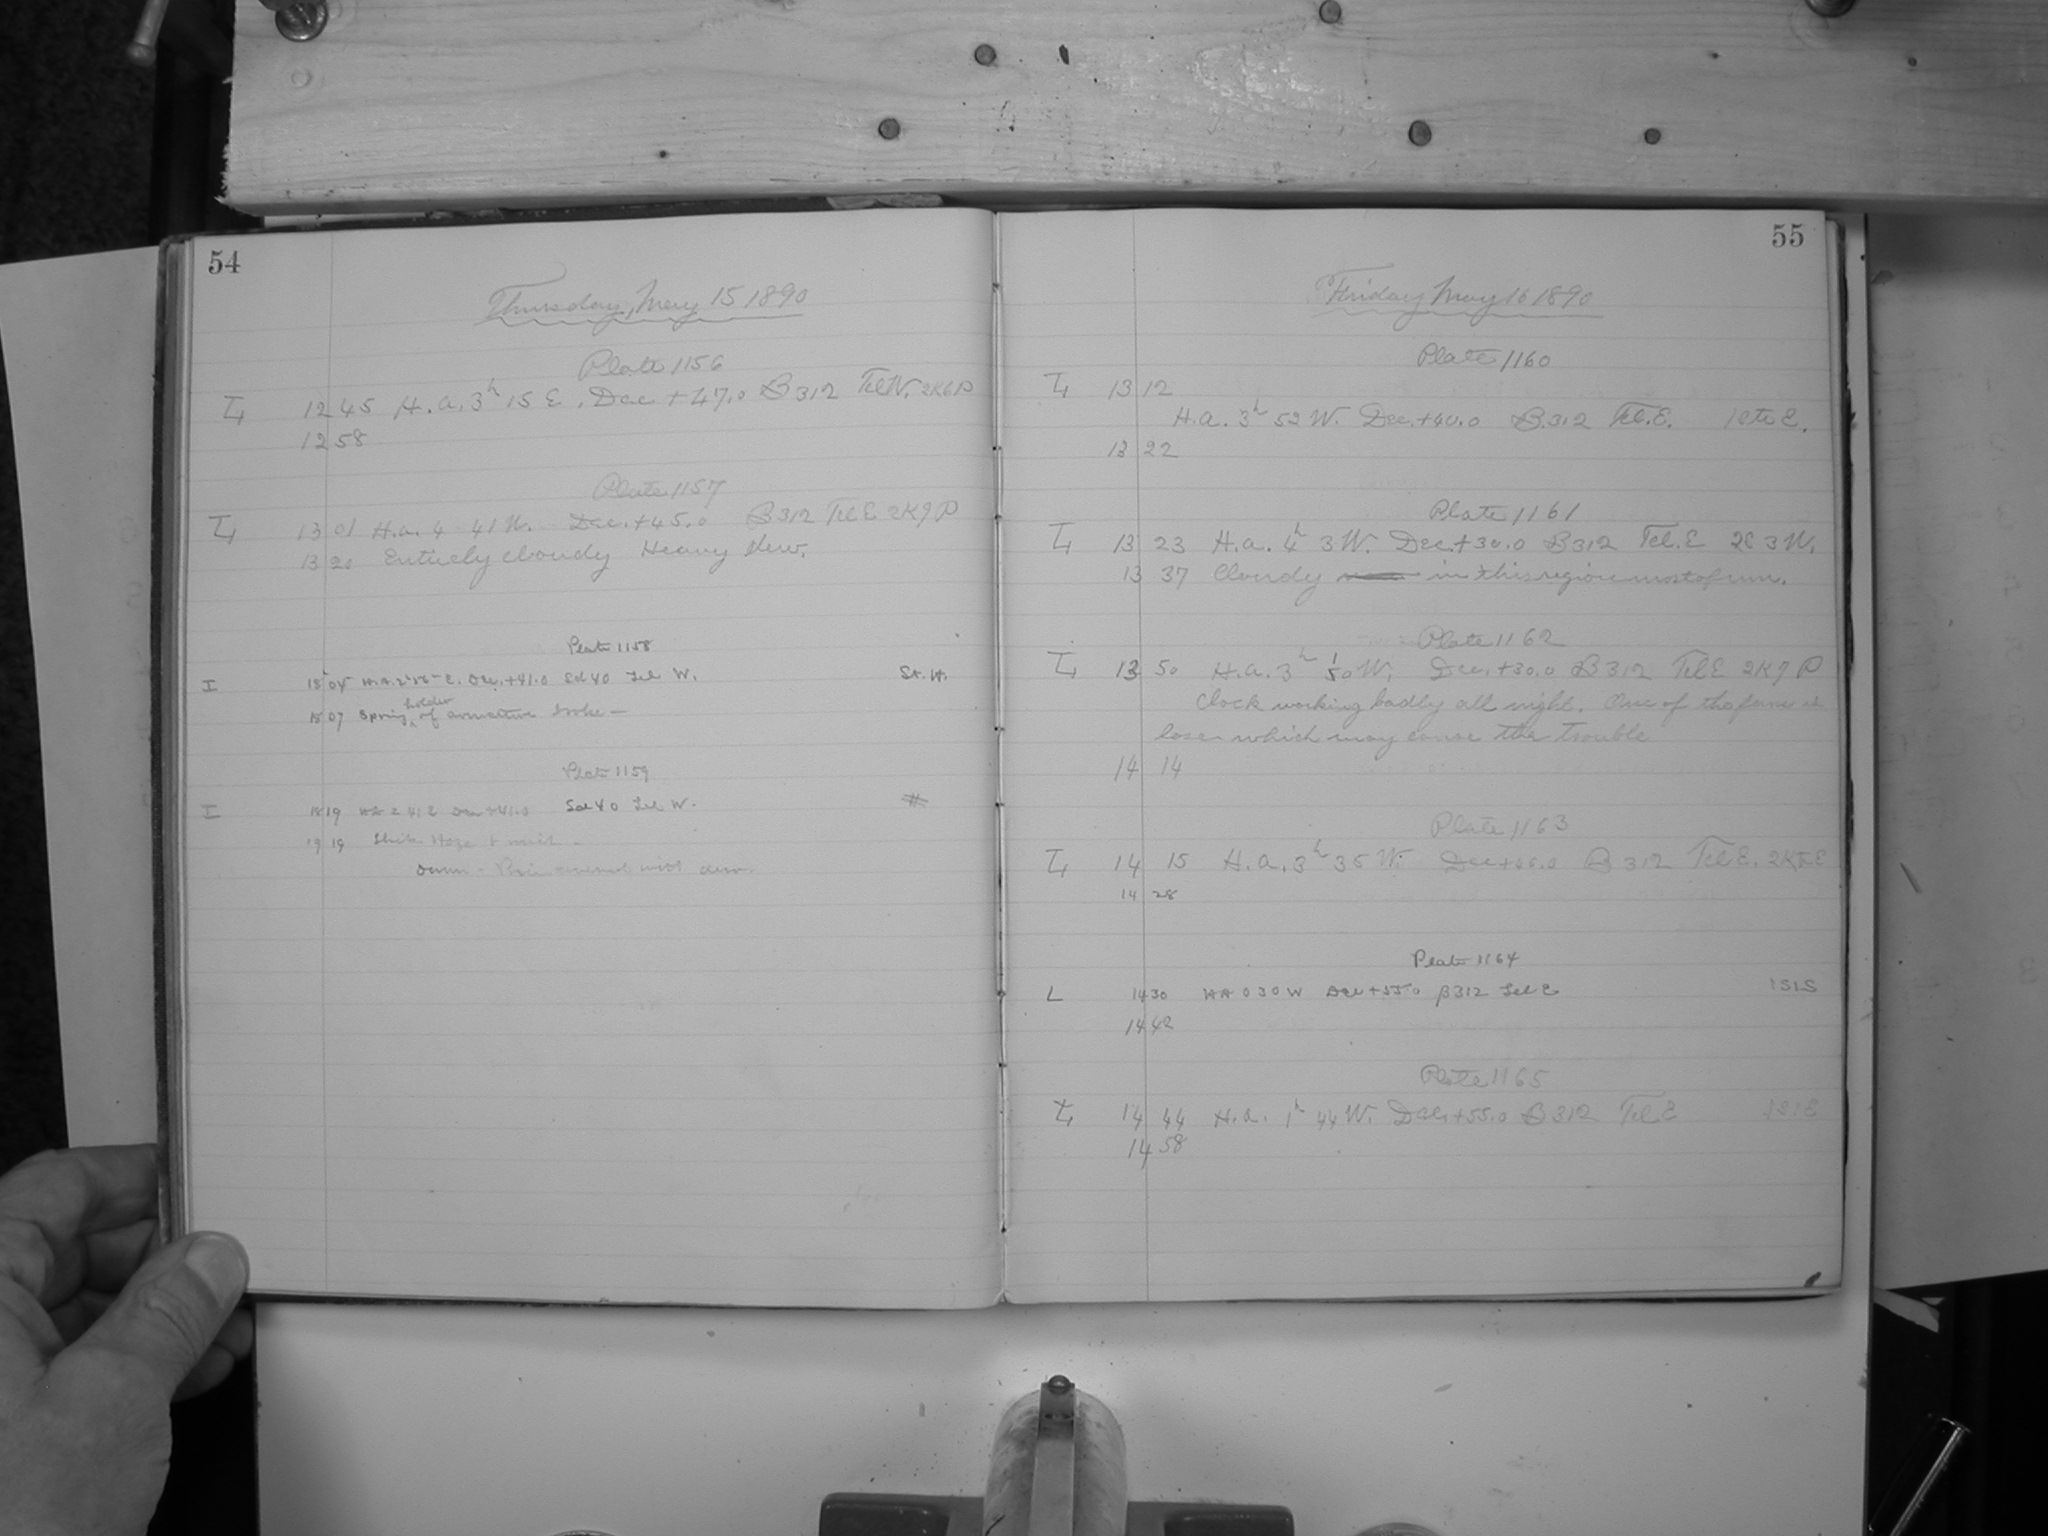 54
Thursday, May 15 1890
Plate 1156
I 12 45 H.a. 3h 15 E. Dec. +47.0 B 312 Tel W. 2K6P
12 58
Plate 1157
I 13 01 H.a. 4 41 W. Dec. +45.0 B 312 Tel E 2K9P
13 20 Entirely cloudy Heavy dew.
Plate 1158
I 18 04 H.A. E. Dec. +41.0 Sol 40 Tel W. St. H.
18 07 Spring holder of armature broke —
Plate 1159
I 18 19 HA 2 41 E Dec +41.0 Sol 40 Tel W.
19 19 Haze
Dawn -
55
Friday May 16 1890
Plate 1160
I 13 12
H.a. 3h 52 W. Dec. +40.0 B 312 Tel. E.
13 22
Plate 1161
I 13 23 H.a. 4h 3 W. Dec. +30.0 B 312 Tel. E 2C 3 W.
13 37 Cloudy in this region most of run.
Plate 1162
I 13 50 H.a. 3h 50 W. Dec. +30.0 B 312 Tel E 2K9P
Clock working badly all night. One of the fans is
loose which may cause the trouble
14 14
Plate 1163
I 14 15 H.a. 3h 35 W. Dec B 312 Tel E.
14 28
Plate 1164
L 14 30 HA 0 30 W Dec +55.0 B 312 Tel E 1S1S
14 42
Plate 1165
I 14 44 H.a. 1h 44 W. Dec. +55.0 B 312 Tel. E 1S1E
14 58